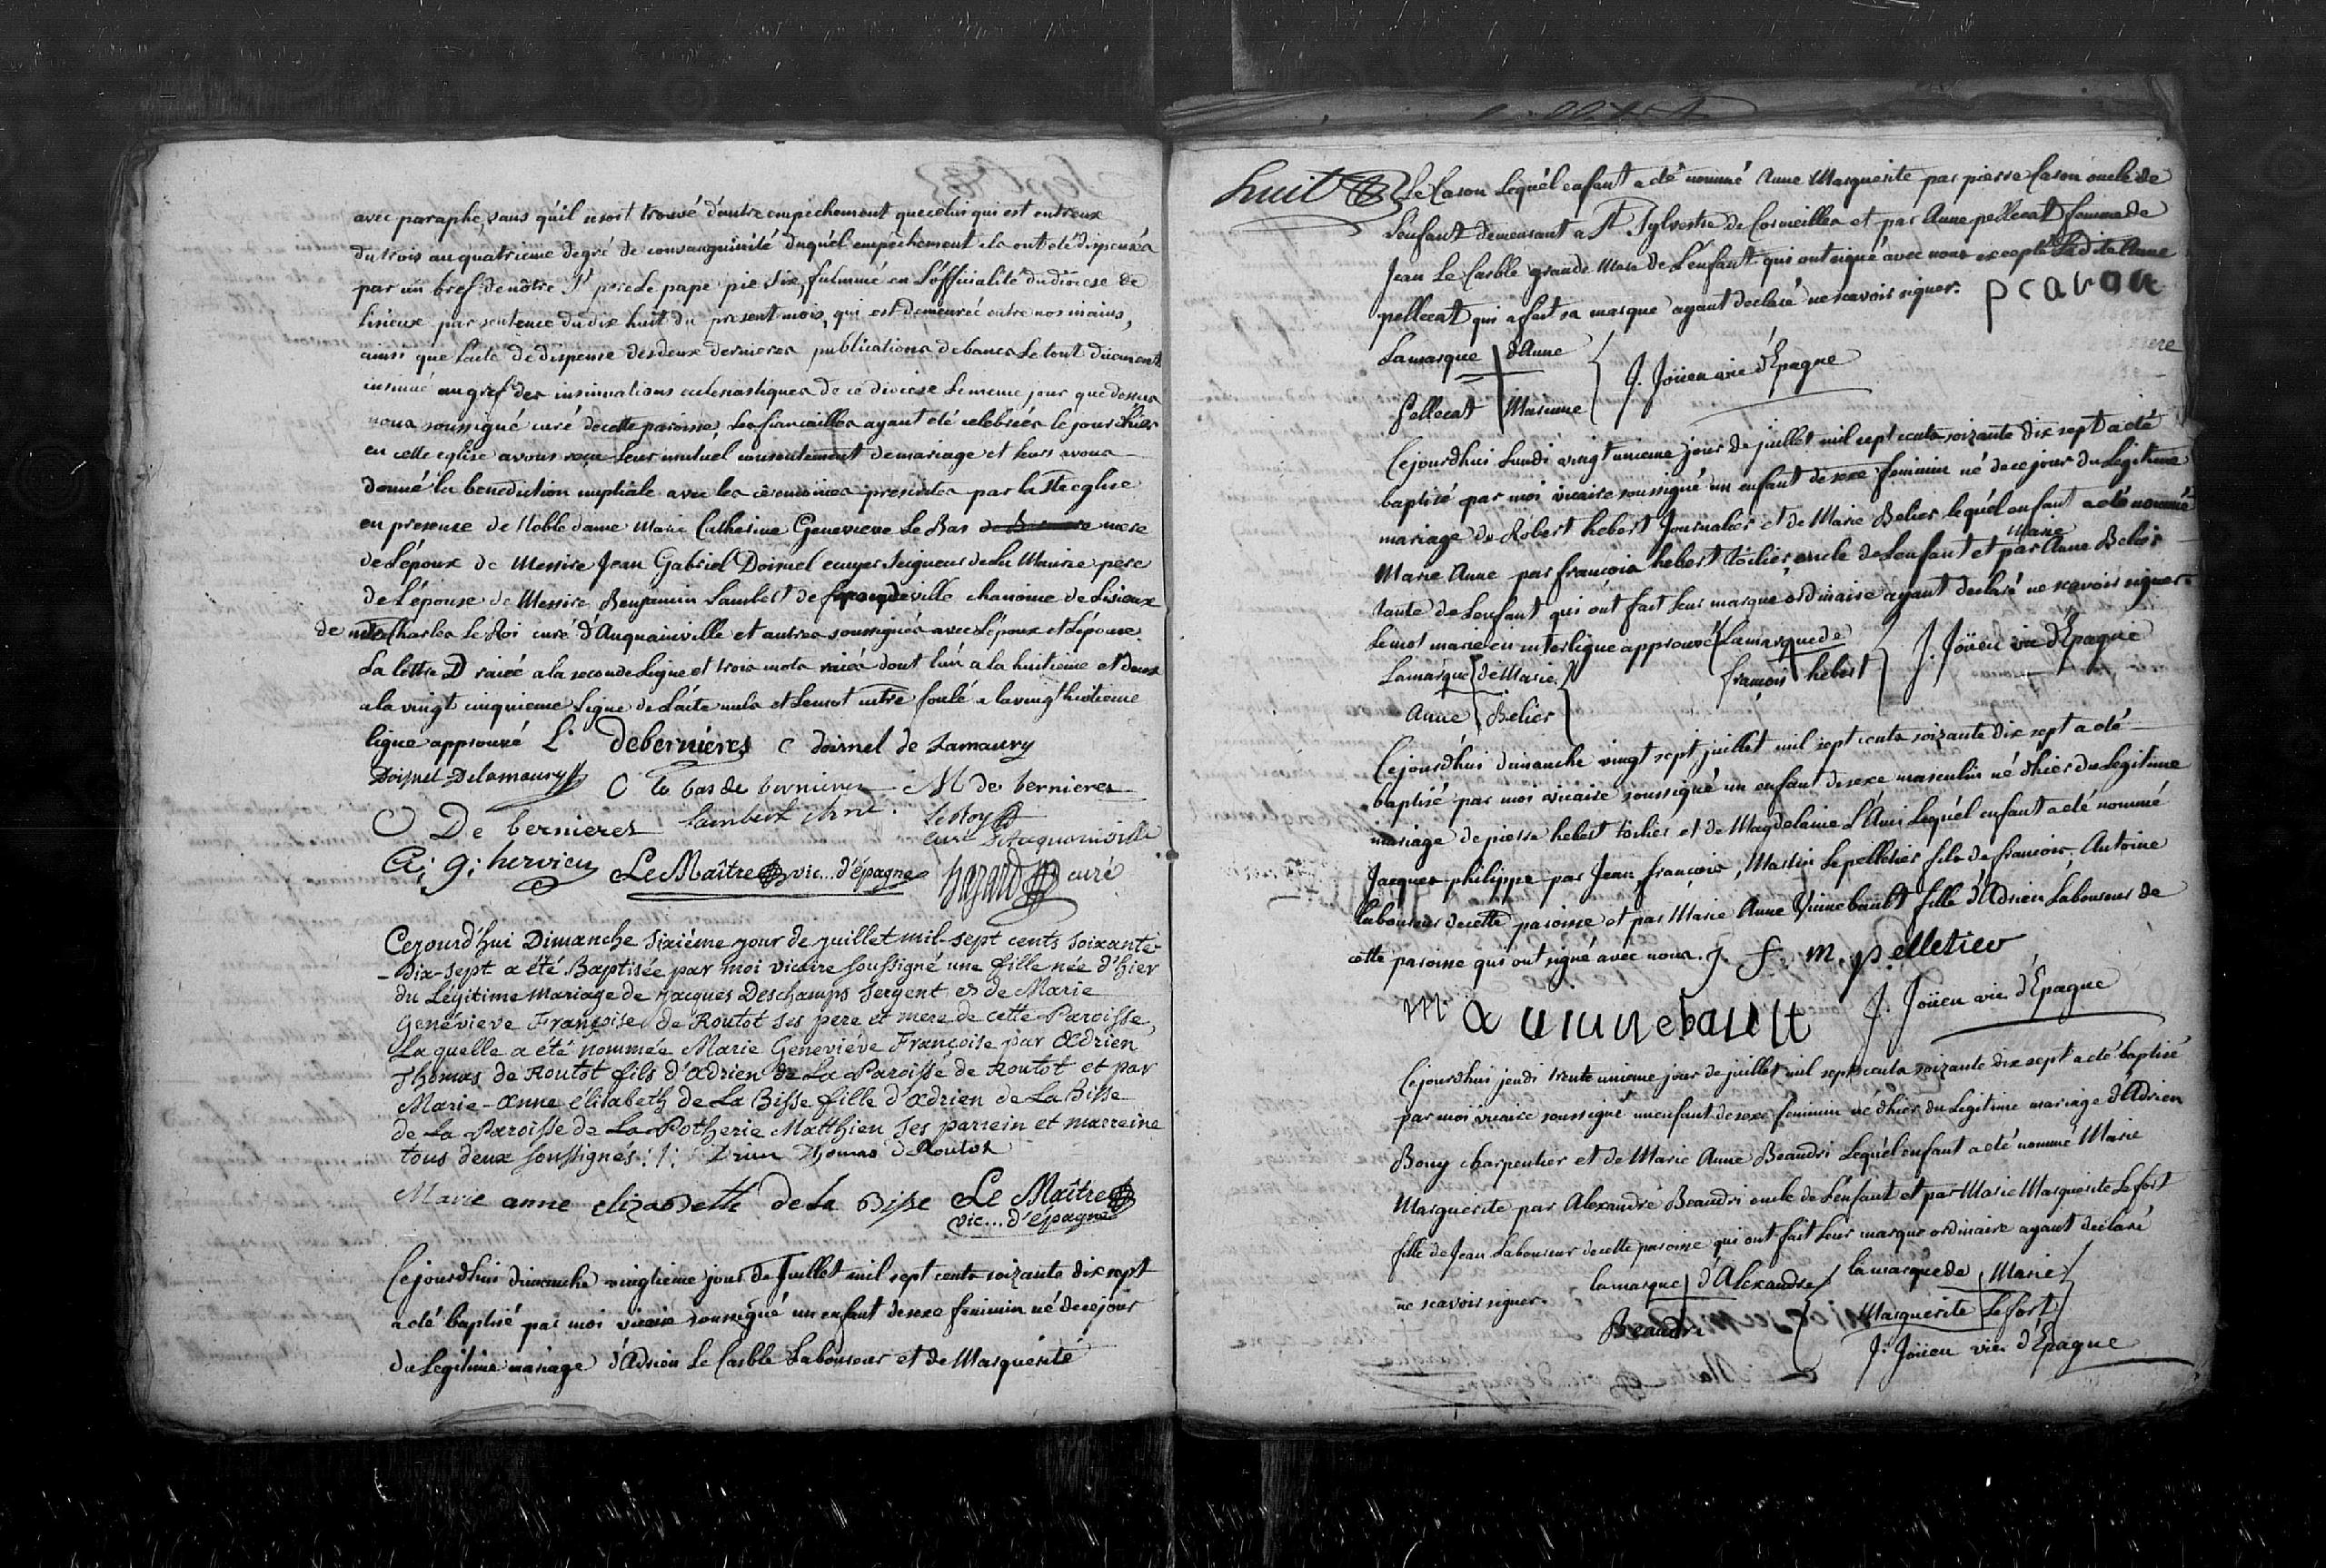 avec paraphe, sans qu'il se soit trouvé d'autre empechement que celui qui est entr'eux
du trois au quatrieme degré de consanguinité duquel empêchement ils ont été dispensés
par un bref de nôtre St pere le pape pie six, fulminé en L'officialité du diocese de
Lisieux par sentence du dix huit du present mois, qui est demeurée entre nos mains,
ainsi que L'acte de dispense des deux dernieres publications de bancs Le tout duement
insinué au gref des insinuations eclesiastiques de ce diocese Le meme jour que dessus
nous soussigné curé de cette paroisse, Les fiancailles ayant été celebrées le jour d'hier
en cette eglise avons reçu Leur mutuel consentement de mariage et leurs avons
donné la benediction nuptiale avec les céremonies prescrites par la Ste eglise
en presence de Noble dame Marie Catherine Genevieve Le Bas mere
de L'époux de Messire Jean Gabriel Doisnel ecuyer Seigneur de La Maurie pere
de L'épouse de Messire Benjamin Lambert de chanoine de Lisieux
de mtre Charles Le Roi curé d'Auquainville et autres soussignés avec L'époux et L'épouse.
La lettre D raiée a la seconde Ligne et trois mots raiés dont l'un a la huitieme et deux
a la vingt cinquieme Ligne de L'acte nuls et Le mot mtre foulé a la vingt huitieme
ligne approuvé L. debernieres C doisnel de Lamaury
Doisnel Delamaury C le bas de bernieres M de bernieres
De bernieres Lambert chne. Le Roy
curé d'Auquainville
A: g: hervieu Le Maître vic... d'épagne hazard curé
Cejourd'hui Dimanche Sixiéme jour de juillet mil-sept cents soixante-
-dix-sept a été Baptisée par moi vicaire soussigné une fille née d'hier
du Légitime Mariage de jacques Deschamps Sergent et de Marie
Genéviève Françoise de Routot ses pere et mere de cette Paroisse,
Laquelle a été nommée Marie Geneviéve Françoise par Adrien
Thomas de Routot fils d'Adrien de La Paroisse de Routot et par
Marie-Anne élisabeth de La Bisse fille d'Adrien de La Bisse
de La Paroisse de La Potherie Matthieu ses parrein et marreine
tous deux soussignés: /: Drien Thomas de Routot
Marie anne elizabette de la Bisse Le Maître
vic... d'épagne
Cejourdhui dimanche vingtieme jour de Juillet mil sept cents soixante dix sept
a été baptisé par moi vicaire soussigné un enfant de sexe feminin né de ce jour
du Legitime mariage d'Adrien Le Carble Laboureur et de Marguerite
huit Le Cason Lequel enfant a été nommé Anne Marguerite par pierre Cason oncle de
L'enfant demeurant a St Sylvestre de Cormeilles et par Anne pellecat femme de
Jean Le Carble grande Mere de L'enfant qui ont signé avec nous excepté Ladite Anne
pellecat qui a fait sa marque ayant declaré ne scavoir signer.
La marque d'Anne
Pellecat Marinne J. Joüen vic d'Epagne
Cejourdhui Lundi vingt unieme jour de juillet mil sept cents soixante dix sept a été
baptisé par moi vicaire soussigné un enfant de sexe feminin né de ce jour du Legitime
mariage de Robert hebert Journalier et de Marie Belier lequel enfant a été nommé
Marie
Marie Anne par francois hebert toilier, oncle de L'enfant et par Anne Belier
tante de L'enfant qui ont fait leur marque ordinaire ayant declaré ne scavoir signer.
Le mot marie en interligne approuvé La marque de
francois hebert J. Joüen vic d'Epagne
La marque de Marie
Anne Belier
Cejourd'hui dimanche vingt sept juillet mil sept cents soixante dix sept a été
baptisé par moi vicaire soussigné un enfant de sexe masculin né d'hier du Legitime
mariage de pierre hebert toilier et de Magdelaine L'Ami Lequel enfant a été nommé
Jacques philippe par Jean, francois, Martin Le pelletier fils de francois, Antoine
Laboureur de cette paroisse et par Marie Anne Vinnebault fille d'Adrien Laboureur de
cette paroisse qui ont signé avec nous. J. f. m. pelletier
m. a vinnebault J. Joüen vic d'Epagne
Cejourdhui jeudi trente unieme jour de juillet mil sept cents soixante dix sept a été baptisé
par moi vicaire soussigné un enfant de sexe feminin né d'hier du Legitime mariage d'Adrien
Bouy charpentier et de Marie Anne Beaudri Lequel enfant a été nommé Marie
Marguerite par Alexandre Beaudri oncle de L'enfant et par Marie Marguerite Le fort
fille de Jean Laboureur de cette paroisse qui ont fait Leur marque ordinaire ayant declaré
ne scavoir signer. la marque d'Alexandre la marque de Marie
Beaudri Marguerite Le fort
J. Joüen vic d'Epagne